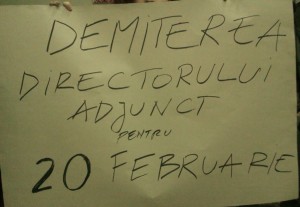 DEMITEREA
DIRECTORULUI
ADJUNCT
PENTRU
20 FEBRUARIE